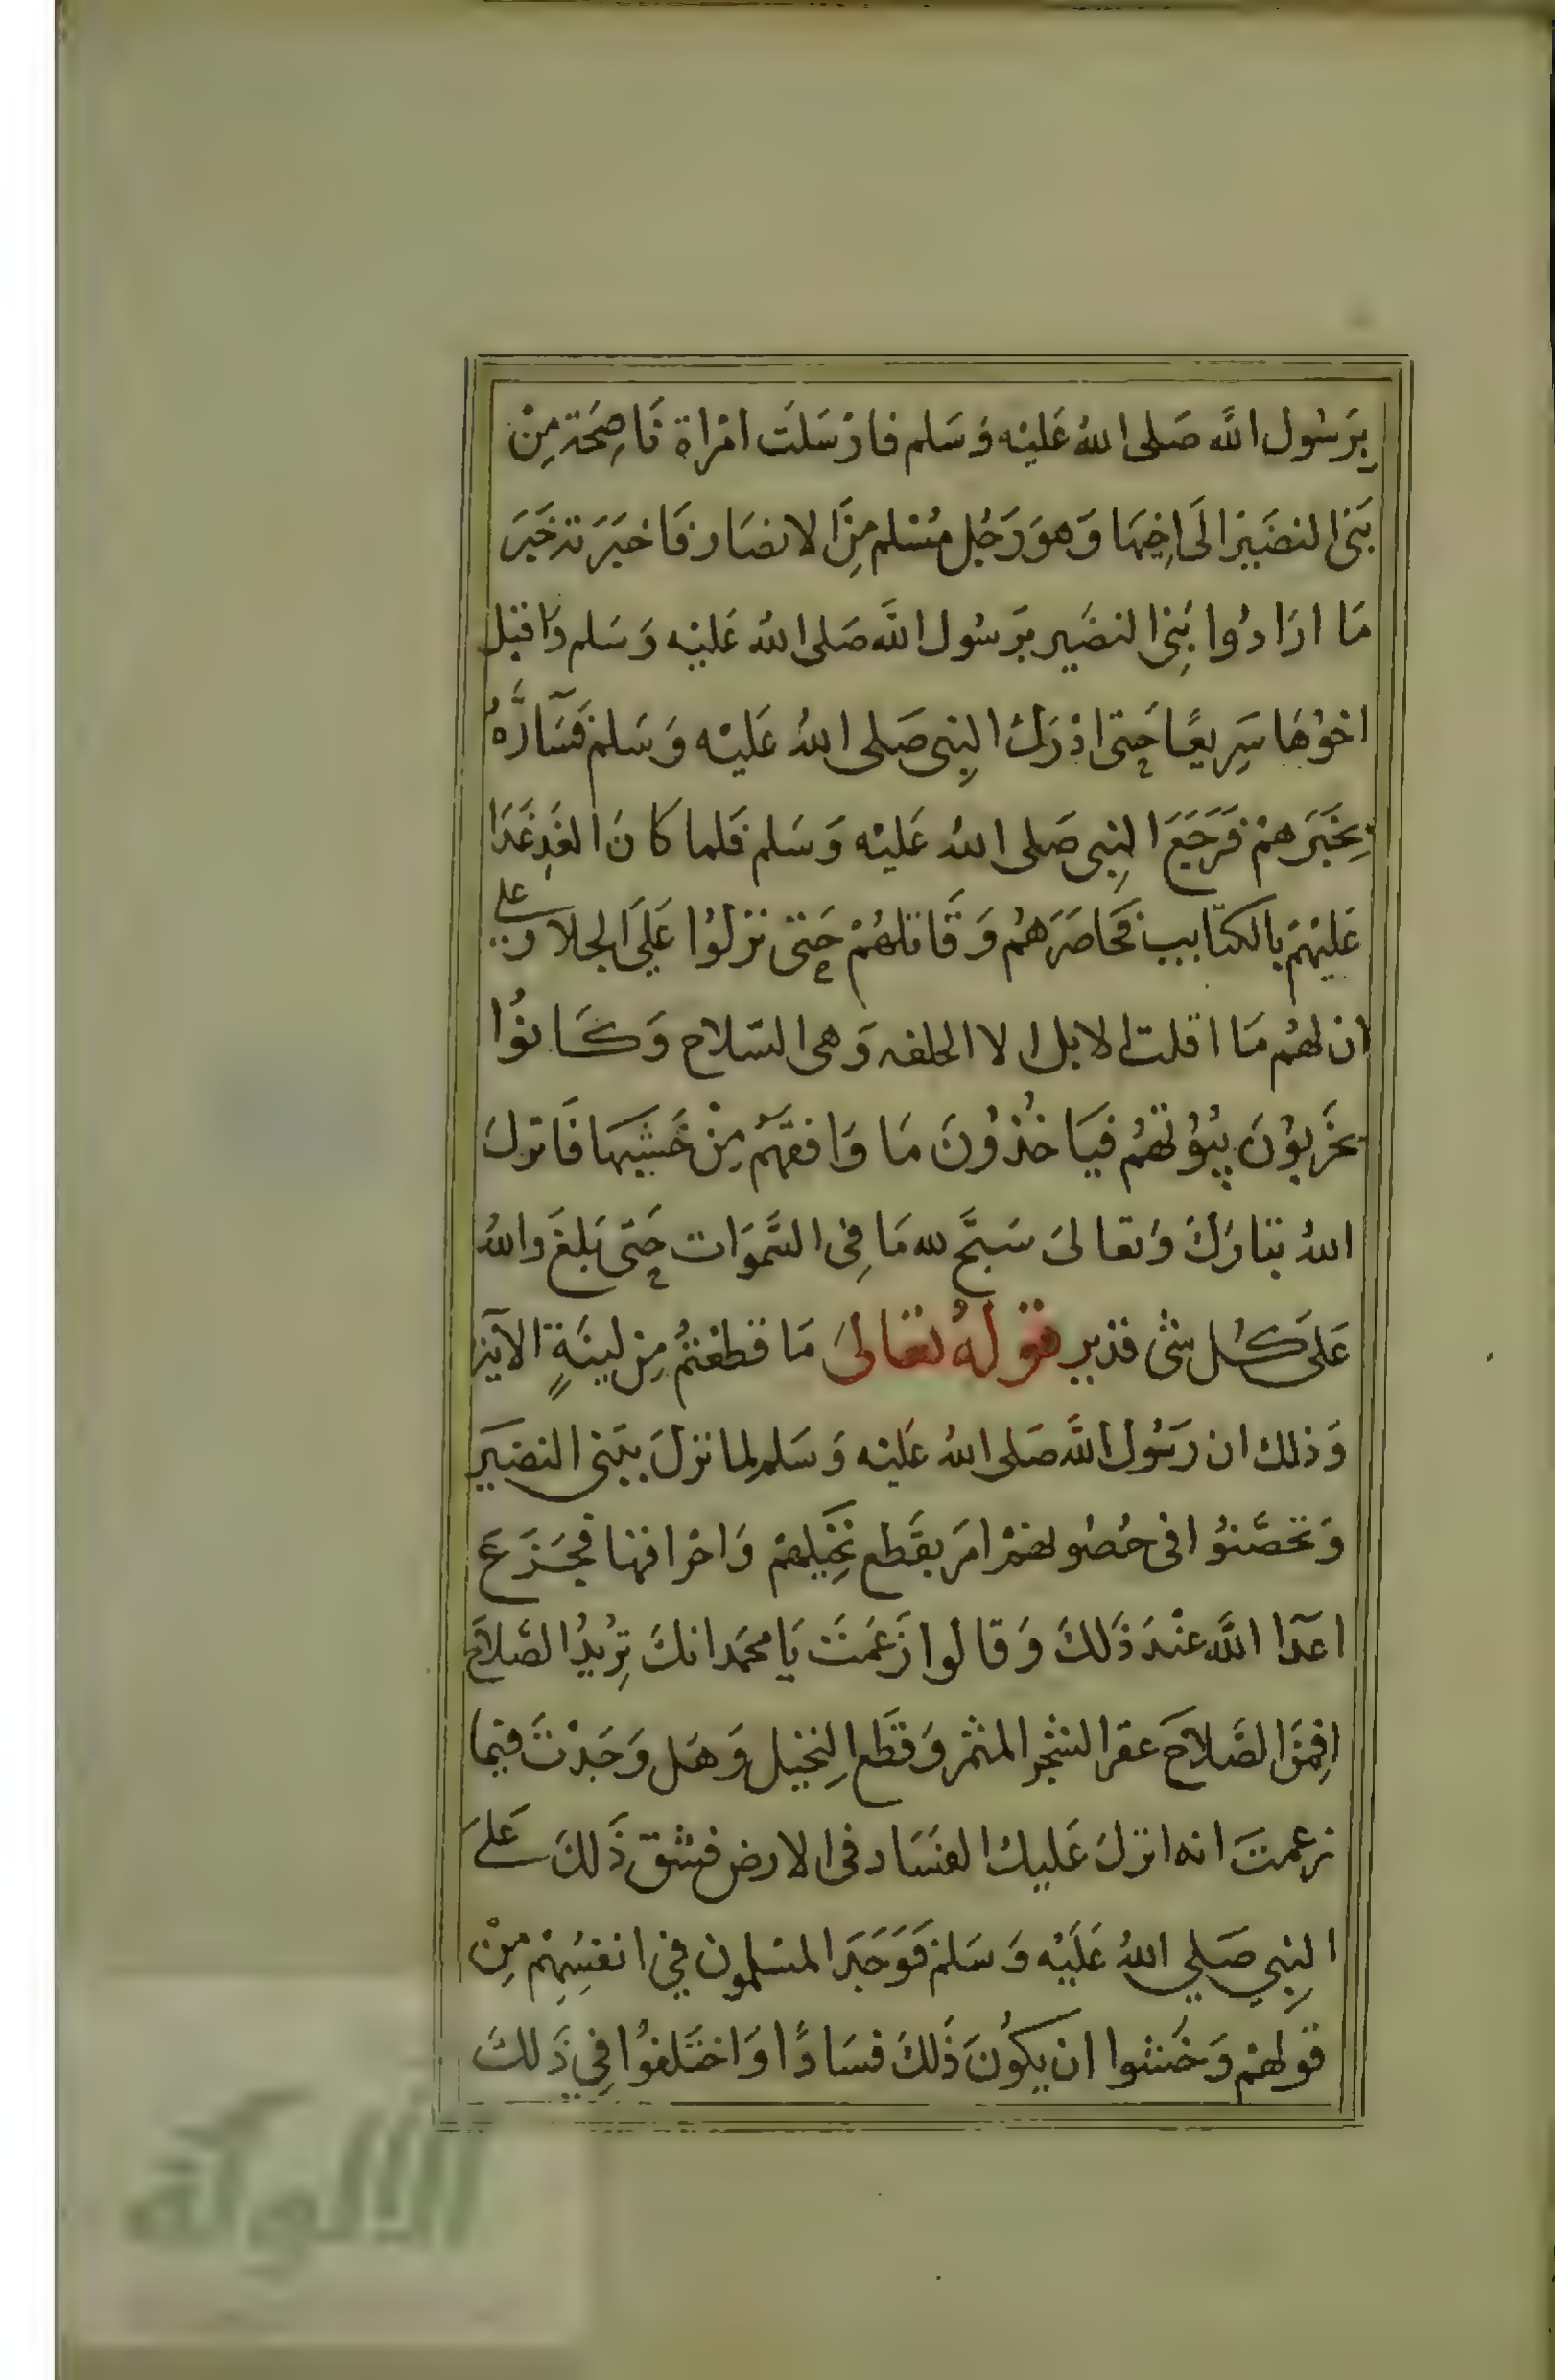 بِرَسُول اللَّه صَلى اللهُ عَليْه وَسَلم فارْسَلَت امْراة نَاصِحَة مِنْ
بَنى النضَيْر الَى اخِيهَا وَهوَ رَجُل مُسْلم مِنَ الانصَار فَاخبَرَته خَبَرَ
مَا ارَادُوا بَنِى النضَير برَسُول اللَّه صَلى اللهُ عَليْه وَسَلم وَاقبَل
اخوُهَا سَرِيعًا حَتى ادْرَك النِبى صَلى اللهُ عَليْه وَسَلمْ فَسَآرَّهُ
بِخَبَرهمْ فَرَجَعَ النِبى صَلى اللهُ عَليْه وَسَلم فَلما كَانَ الغَدِ غَدَا
عَليْهمْ بالكتَايب فحَاصَرَهمُ وَقَاتلهُمْ حَتى نزلوُا عَلَى الجلا وَعلى
ان لهُم مَا اقلت الابل الا الحلقه وَهى السّلاح وَكَانوُا
يخَرِبوُن بيُوُتهُمُ فيَاخُذوُنَ مَا وَافقهُمْ مِنْ خَشَبهَا فَانزلَ
اللهُ تبَارَكَ وَتعَالىَ سَبَّحَ لله مَا فِى السَّموَات حَتى بَلغَ وَاللهُ
عَلىَ كُل شَىْ قدْير قوْلهُ تعَالىَ مَا قطَعْتُمْ مِنْ لِينَةٍ الآيَة
وَذلك ان رَسُول اللَّه صَلى اللهُ عَليْه وَسَلم لما نزلَ ببَنى النضيَر
وَتحَصَّنوُا فى حُصُولهمْ امَر بقَطع نَخِيلهمْ وَاحْراقهَا فجَزَعَ
اعَدا اللَّه عنْدَ ذَلكَ وَقالوا زَعَمْتَ يَا محَمد انكَ تِرُيدُ الصَّلاَحَ
افِمَنَ الصَّلاَحَ عقر الشجَر المثمْر وَقَطَع النِخيْل وَهَل وَجَدْتَ فيمَا
زعمتَ انه انزلَ عَليك الفسَاد فى الارض فشق ذَلكَ عَلىَ
النِبي صَلي اللهُ عَلَيْه وَسَلمْ فَوَجَدَ المسْلمون في انفسِهِمْ مِنْ
قوْلهمْ وَخَشوا ان يكوُنَ ذَلكَ فسَادًا وَاختَلفوُا فِي ذَلكَ
الألوكة